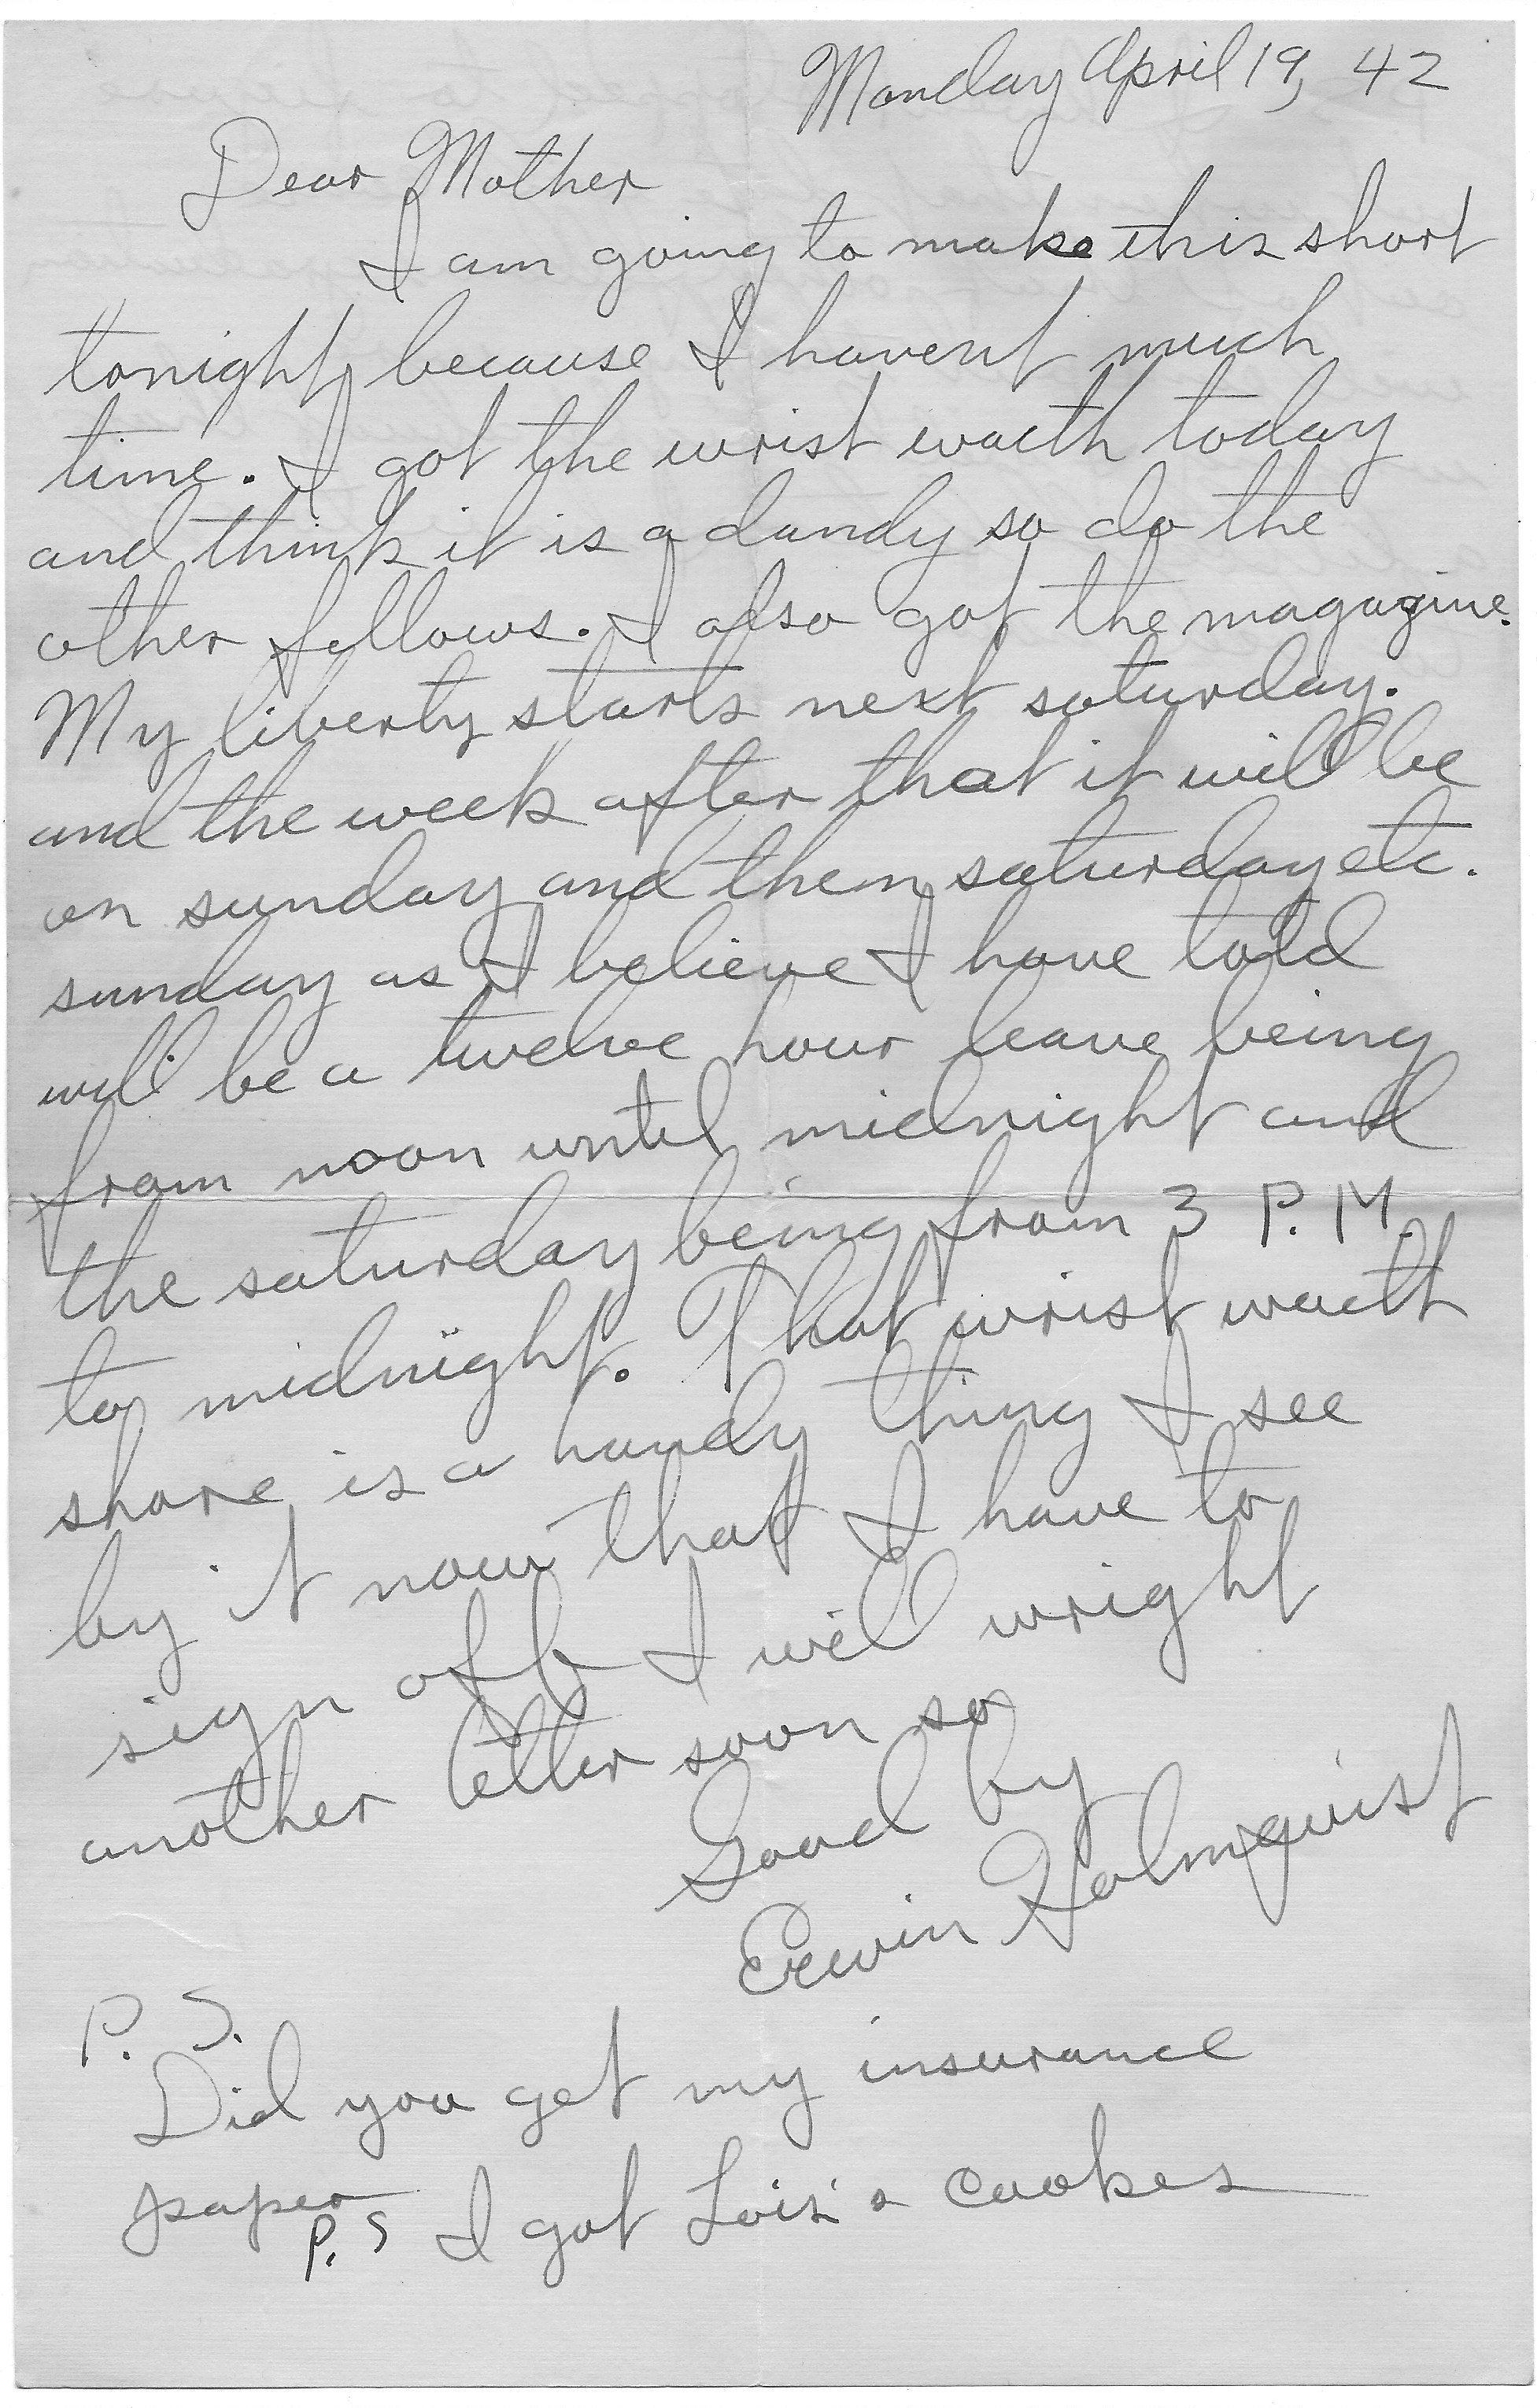 Monday April 19, 42
Dear Mother
I am going to make this short
tonight because I havent much
time. I got the wrist wacth today
and think it is a dandy so do the
other fellows. I also got the magazine.
My liberty starts next saturday.
and the week after that it will be
on sunday and then saturday etc.
sunday as I believe I have told
will be a twelve hour leave being
from noon until midnight and
the saturday being from 3 P.M.
to midnight. That wrist wacth
shore is a handy thing I see
by it now that I have to
sign off I will wright
another letter soon so
Good by
Erwin Holmquist
P. S.
Did you get my insurance
paper
P. S I got Lois's cookes